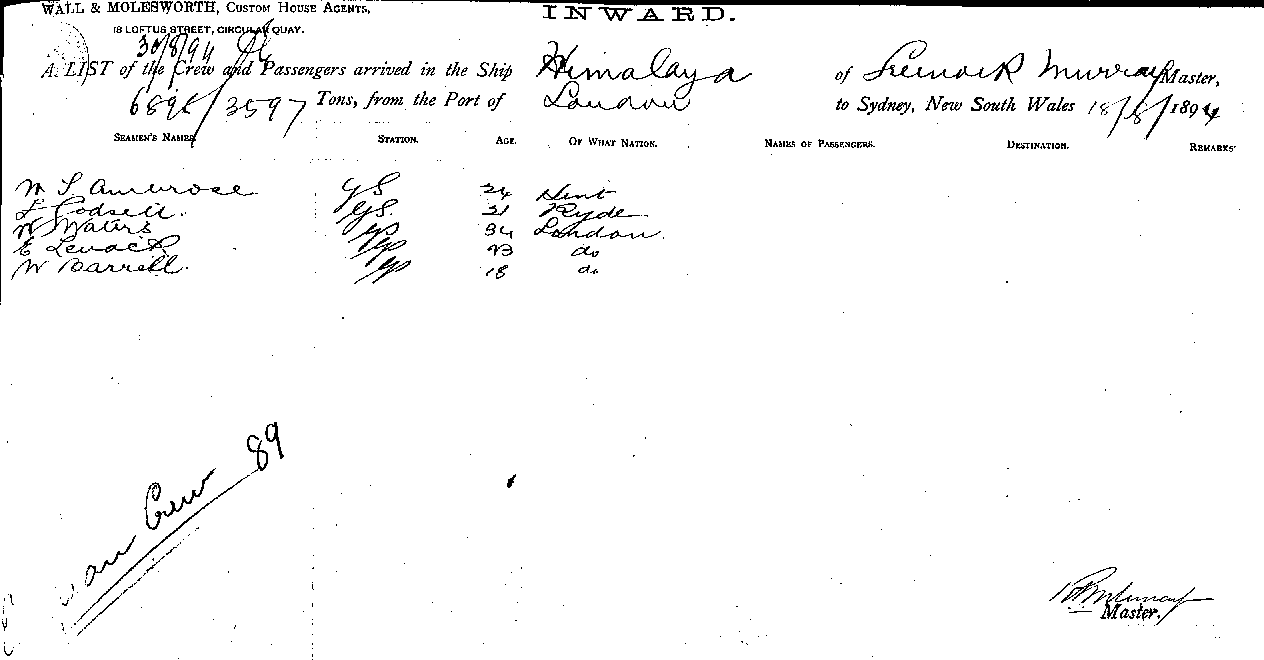 WALL & MOLESWORTH, CUSTOM HOUSE AGENTS,
INWARD.
18 LOFTUS STREET, CIRCULAR QUAY.
30/8/94
A LIST of the Crew and Passengers arrived in the Ship Himalaya of Greenock Murray Master,
6898/3597 Tons, from the Port of London to Sydney, New South Wales 18/8/1894
SEAMEN'S NAMES. STATION. AGE. OF WHAT NATION. NAMES OF PASSENGERS. DESTINATION. REMARKS
W S Ambrose GS 24
GS. 21 Ryde
W Waters 34 London
E 23 do
W Barrell. 18 do
Crew 89
Master.